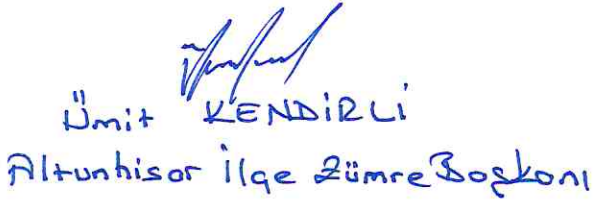 Ümit KENDİRLİ
Altunhisar İlçe Zümre Başkanı